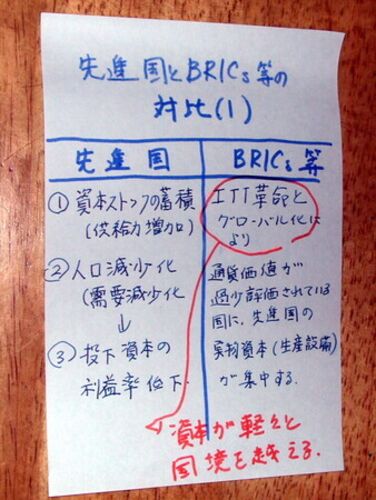 先進国とBRICs等の
対比(1)
先進国
BRICs等
①資本ストックの蓄積
(供給力増加)
②人口減少化
(需要減少化
↓
③投下資本の
利益率低下.
ITT革命と
グローバル化に
より
通貨価値が
過少評価されている
国に、先進国の
実物資本(生産設備)
が集中する.
資本が軽々と
国境を越える.